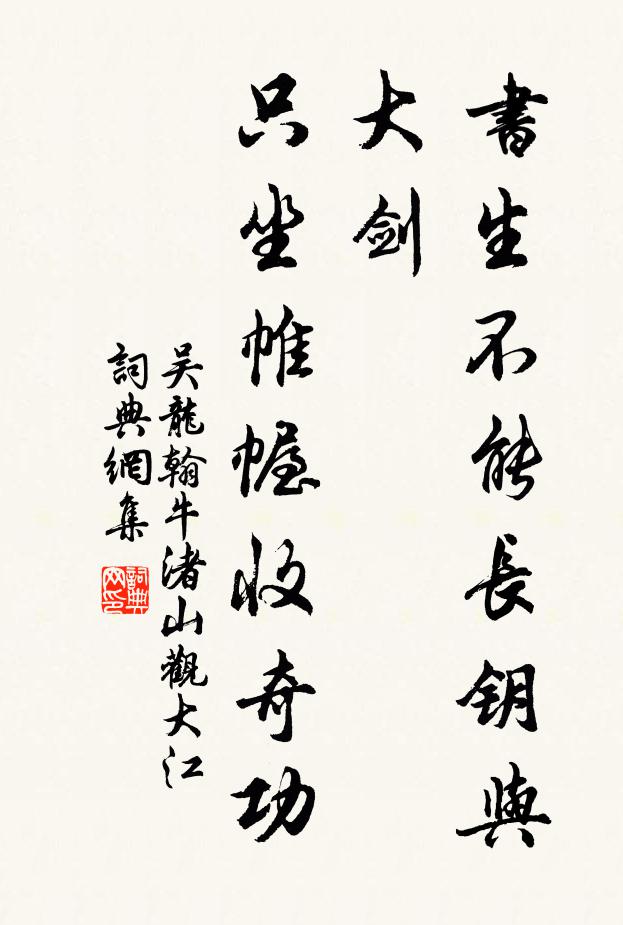 書生不能長钥與
大剑
只坐帷幄收奇功
吴龍翰牛渚山觀大江
詞典網集
詞典网印